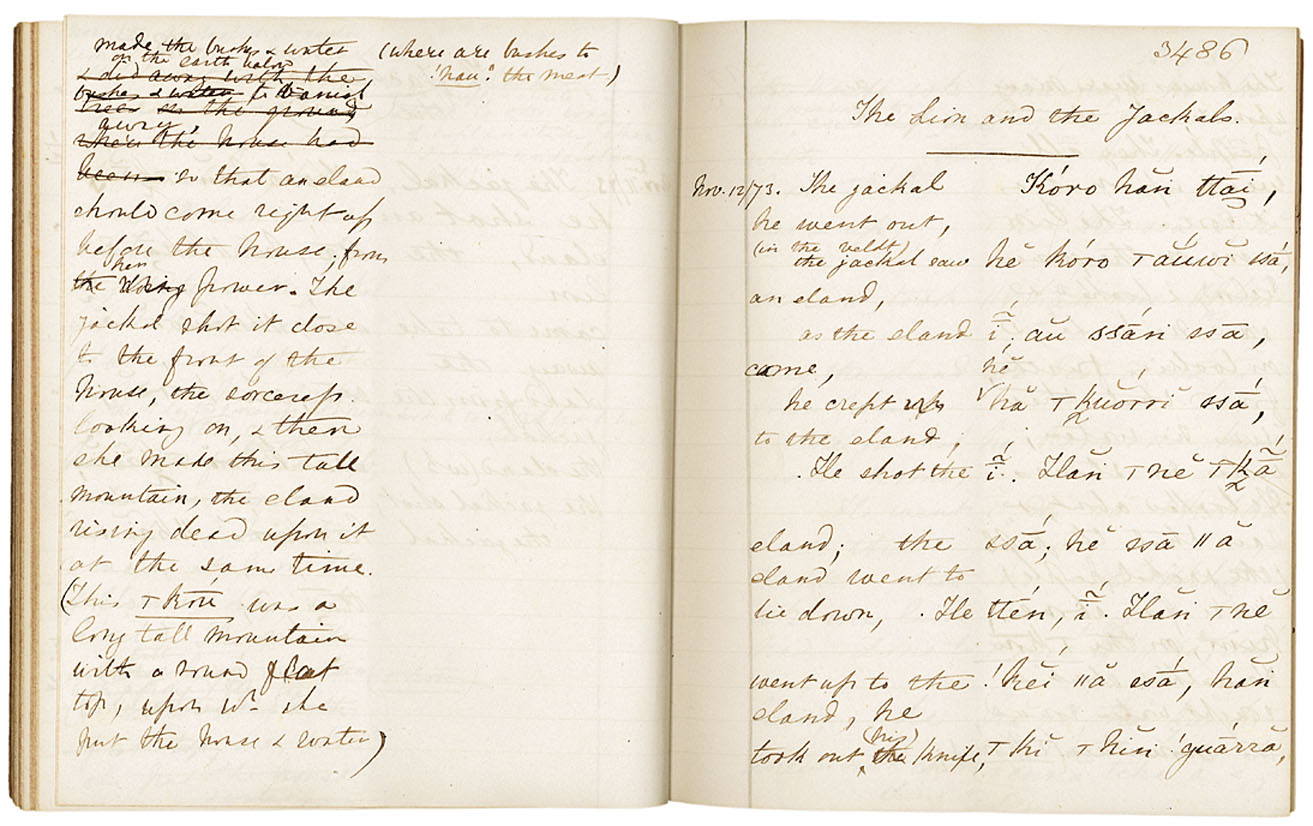 made the bushes & water
on the earth below
& did away with the
bushes & water
trees on the ground
away,
when the house had
been so that an eland
should come right up
before the house, from
the her power. The
jackal shot it close
to the front of the
house, the sorceress.
looking on, & then
she made this tall
mountain, the eland
rising dead upon it
at the same time.
(This ⊤kóü was a
long tall mountain
with a round flat
top, upon wh. she
put the house & water)
(where are bushes to
'hau: the meat)
3486
The Lion and the Jackals.
Nov. 12/73. The jackal Kóro hăn ttái,
he went out,
(in the veldt)
the jackal saw hĕ kóro ⊤ắuwĭ ssá,
an eland,
as the eland ĩ. aŭ ssán ssā,
came, hĕ
he crept up hă ⊤kuŏrrĭ ssá,
to the eland;
He shot the ĩ. Hăn ⊤nĕ ⊤kắ
eland; the ssá; hĕ ssā ǁă
eland went to
lie down, He ttén, ĩ. Hăn ⊤nĕ
went up to the !kĕi ǁă ssá, hăn
eland, he
(his)
took out the knife, ⊤kĭ ⊤hĭn !guárră,